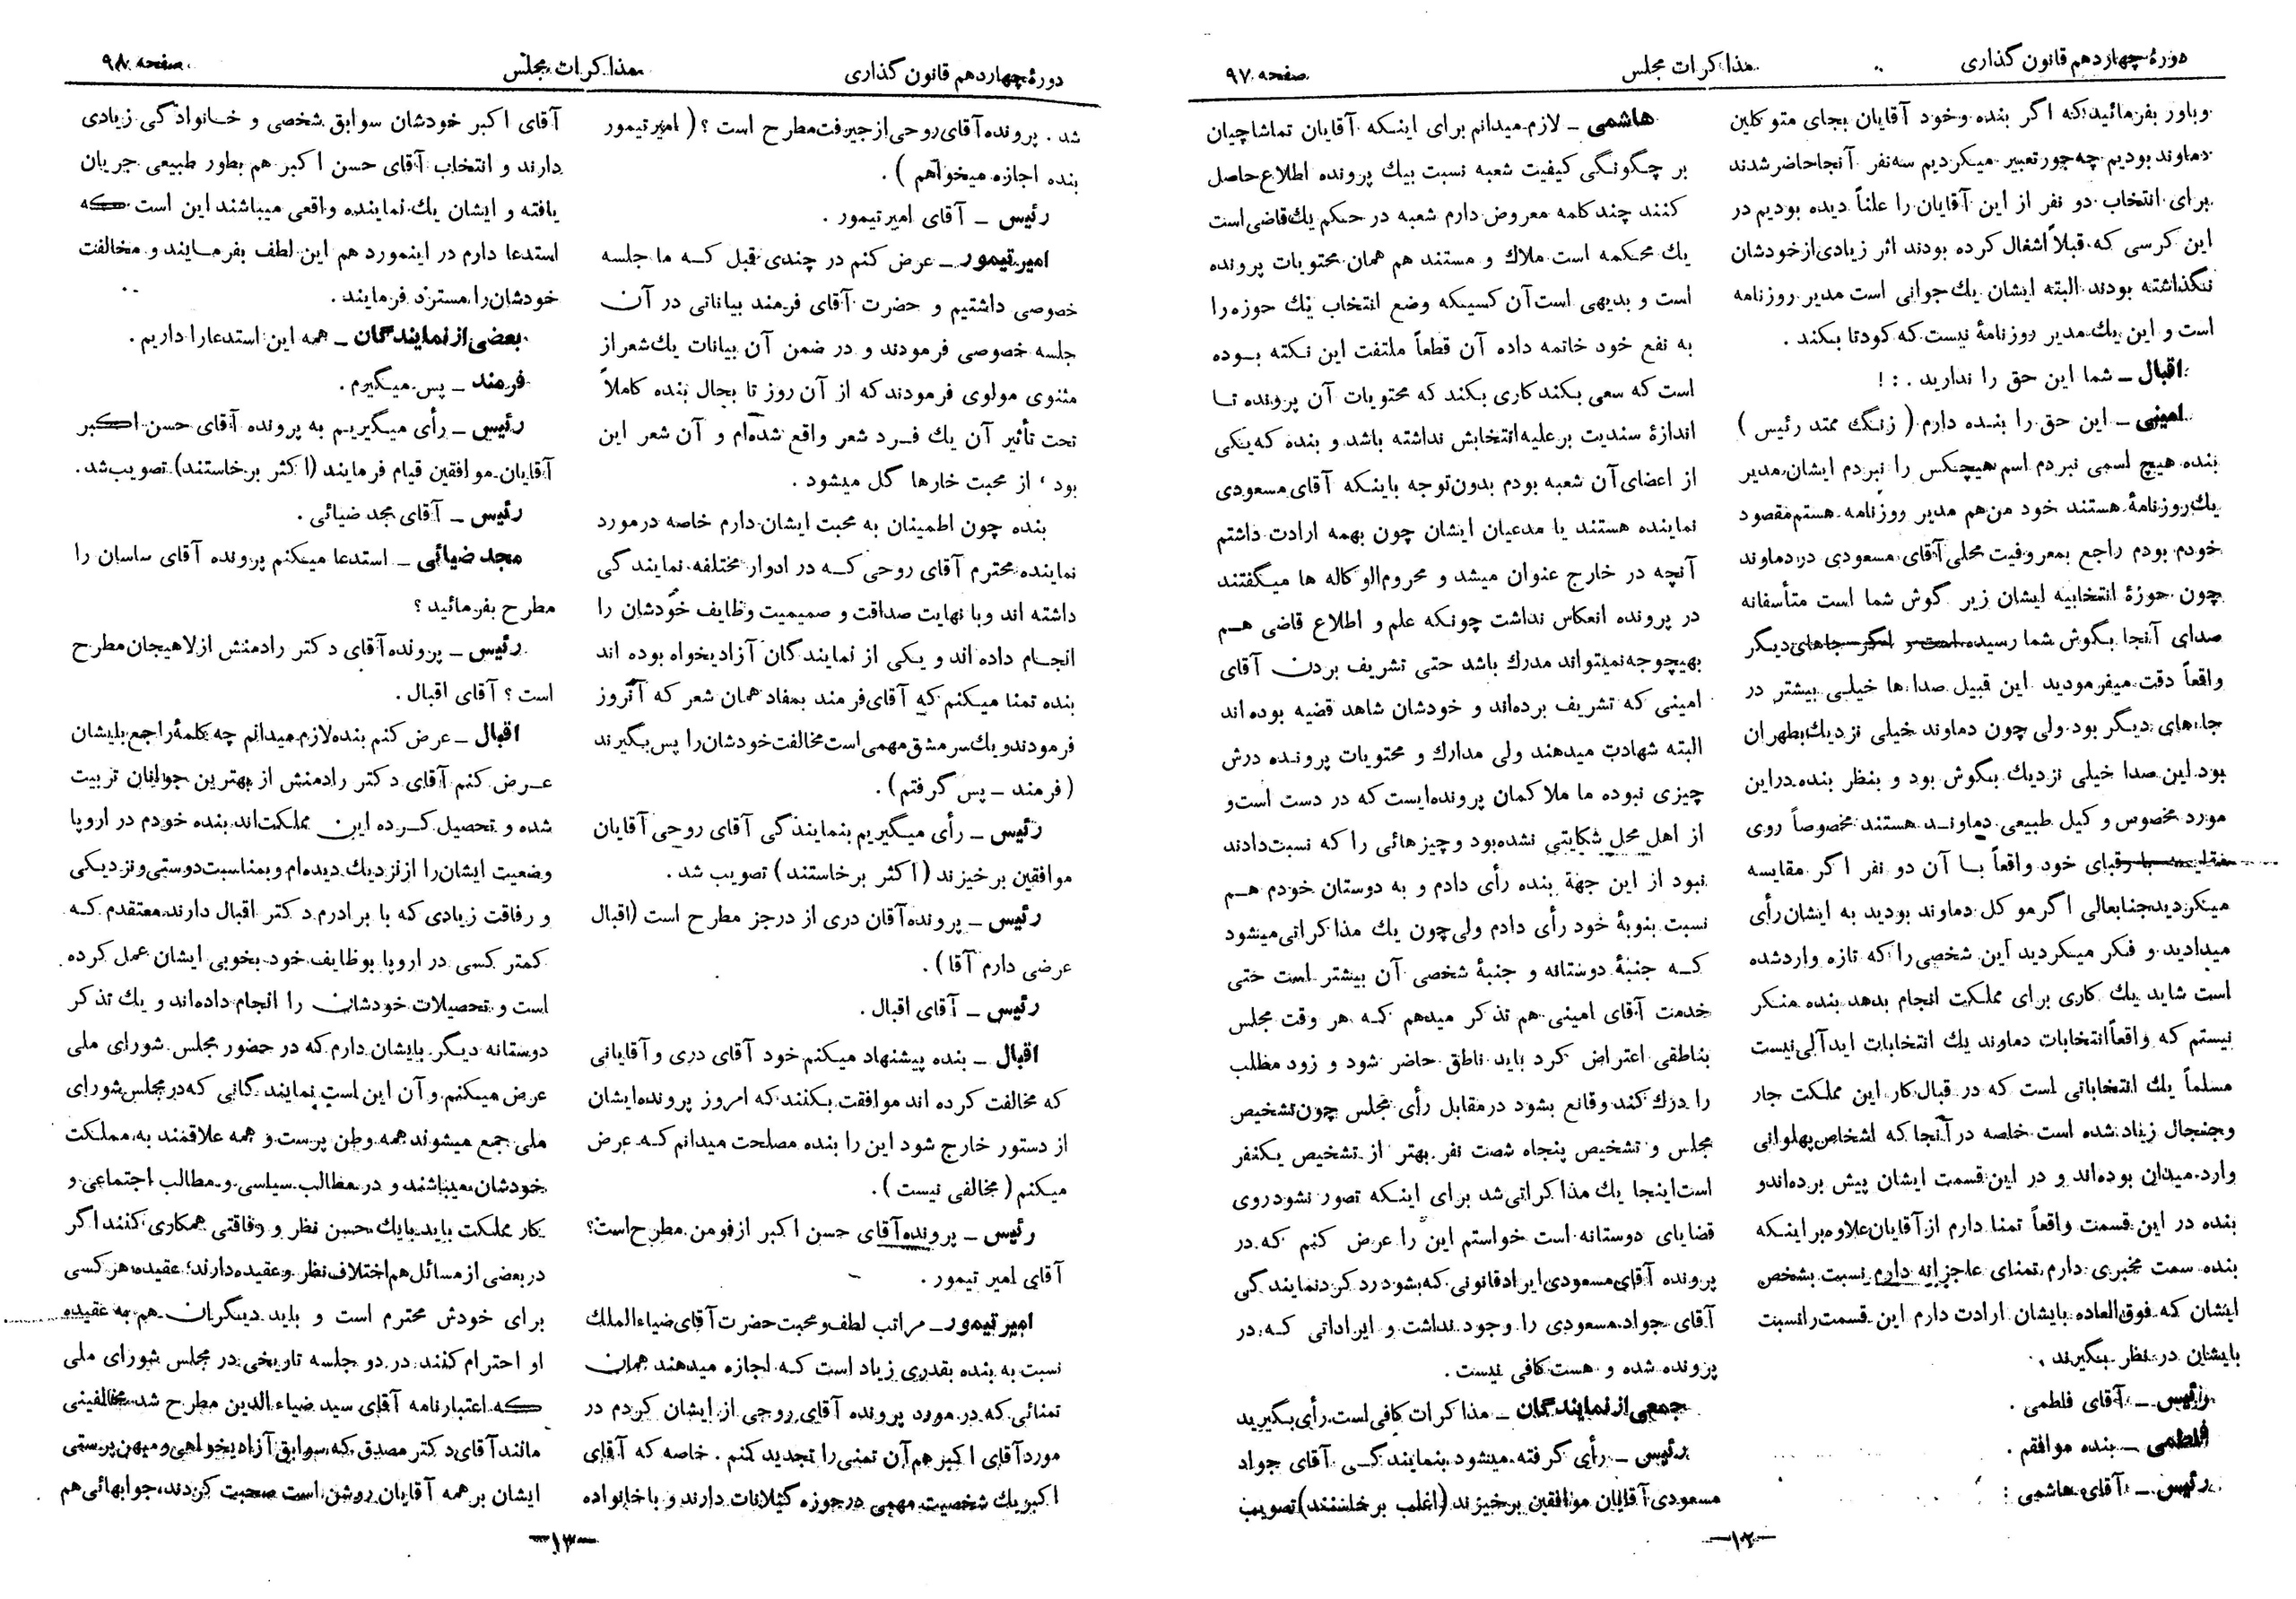 دورهٔ چهاردهم قانون گذاری
مذاکرات مجلس
صفحه ۹۷
وباور بفرمائید که اگر بنده وخود آقایان بجای متوکلین
دماوند بودیم چه جور تعبیر میکردیم سه نفر آنجا حاضر شدند
برای انتخاب دو نفر از این آقایان را علناً دیده بودیم در
این کرسی که قبلاً اشغال کرده بودند اثر زیادی از خودشان
نگذاشته بودند البته ایشان یك جوانی است مدیر روزنامه
است و این یك مدیر روزنامهٔ نیست که کودتا بکند .
اقبال ـ شما این حق را ندارید . : !
امینی ـ این حق را بنده دارم ( زنگ ممتد رئیس )
بنده هیچ اسمی نبردم اسم هیچکس را نبردم ایشان مدیر
یك روزنامهٔ هستند خود من هم مدیر روزنامه هستم مقصود
خودم بودم راجع بمعروفیت محلی آقای مسعودی در دماوند
چون حوزهٔ انتخابیه ایشان زیر گوش شما است متأسفانه
صدای آنجا بگوش شما رسیده است و اگر جاهای دیگر
واقعاً دقت میفرمودید این قبیل صداها خیلی بیشتر در
جاهای دیگر بود ولی چون دماوند خیلی نزدیك بطهران
بود این صدا خیلی نزدیك بگوش بود و بنظر بنده در این
مورد مخصوص وکیل طبیعی دماوند هستند مخصوصاً روی
مقایسه با رقبای خود واقعاً با آن دو نفر اگر مقایسه
میکردید جنابعالی اگر موکل دماوند بودید به ایشان رأی
میدادید و فکر میکردید این شخصی را که تازه وارد شده
است شاید یك کاری برای مملکت انجام بدهد بنده منکر
نیستم که واقعاً انتخابات دماوند یك انتخابات ایدآلی نیست
مسلماً یك انتخاباتی است که در قبال کار این مملکت جار
وجنجال زیاد شده است خاصه در آنجا که اشخاص پهلوانی
وارد میدان بوده‌اند و در این قسمت ایشان پیش برده‌اند و
بنده در این قسمت واقعاً تمنا دارم از آقایان علاوه بر اینکه
بنده سمت مخبری دارم تمنای عاجزانه دارم نسبت بشخص
ایشان که فوق‌العاده بایشان ارادت دارم این قسمت را نسبت
بایشان در نظر بگیرند .
رئیس ـ آقای فاطمی .
فاطمی ـ بنده موافقم .
رئیس ـ آقای هاشمی :
هاشمی ـ لازم میدانم برای اینکه آقایان تماشاچیان
بر چگونگی کیفیت شعبه نسبت بیك پرونده اطلاع حاصل
کنند چند کلمه معروض دارم شعبه در حکم یك قاضی است
یك محکمه است ملاك و مستند هم همان محتویات پرونده
است و بدیهی است آن کسیکه وضع انتخاب یك حوزه را
به نفع خود خاتمه داده آن قطعاً ملتفت این نکته بوده
است که سعی بکند کاری بکند که محتویات آن پرونده تا
اندازهٔ سندیت بر علیه انتخابش نداشته باشد و بنده که یکی
از اعضای آن شعبه بودم بدون توجه باینکه آقای مسعودی
نماینده هستند یا مدعیان ایشان چون بهمه ارادت داشتم
آنچه در خارج عنوان میشد و محروم‌الوکاله ها میگفتند
در پرونده انعکاس نداشت چونکه علم و اطلاع قاضی هم
بهیچوجه نمیتواند مدرك باشد حتی تشریف بردن آقای
امینی که تشریف برده‌اند و خودشان شاهد قضیه بوده اند
البته شهادت میدهند ولی مدارك و محتویات پرونده درش
چیزی نبوده ما ملاکمان پرونده‌ایست که در دست است و
از اهل محل شکایتی نشده بود و چیزهائی را که نسبت دادند
نبود از این جهة بنده رأی دادم و به دوستان خودم هم
نسبت بنوبهٔ خود رأی دادم ولی چون یك مذاکراتی میشود
که جنبهٔ دوستانه و جنبهٔ شخصی آن بیشتر است حتی
خدمت آقای امینی هم تذکر میدهم که هر وقت مجلس
بناطقی اعتراض کرد باید ناطق حاضر شود و زود مطلب
را درك کند و قانع بشود در مقابل رأی مجلس چون تشخیص
مجلس و تشخیص پنجاه شصت نفر بهتر از تشخیص یکنفر
است اینجا یك مذاکراتی شد برای اینکه تصور نشود روی
قضایای دوستانه است خواستم این را عرض کنم که در
پرونده آقای مسعودی ایراد قانونی که بشود رد کرد نمایندگی
آقای جواد مسعودی را وجود نداشت و ایراداتی که در
پرونده شده و هست کافی نیست .
جمعی از نمایندگان ـ مذاکرات کافی است رأی بگیرید
رئیس ـ رأی گرفته میشود بنمایندگی آقای جواد
مسعودی آقایان موافقین برخیزند (اغلب برخاستند) تصویب
ـ۱۲ـ
دورهٔ چهاردهم قانون گذاری
مذاکرات مجلس
صفحه ۹۸
شد . پرونده آقای روحی از جیرفت مطرح است ؟ ( امیر تیمور
بنده اجازه میخواهم ) .
رئیس ـ آقای امیر تیمور .
امیر تیمور ـ عرض کنم در چندی قبل که ما جلسه
خصوصی داشتیم و حضرت آقای فرمند بیاناتی در آن
جلسه خصوصی فرمودند و در ضمن آن بیانات یك شعر از
مثنوی مولوی فرمودند که از آن روز تا بحال بنده کاملاً
تحت تأثیر آن یك فرد شعر واقع شده‌ام و آن شعر این
بود ، از محبت خارها گل میشود .
بنده چون اطمینان به محبت ایشان دارم خاصه در مورد
نماینده محترم آقای روحی که در ادوار مختلفه نمایندگی
داشته اند وبا نهایت صداقت و صمیمیت وظایف خودشان را
انجام داده اند و یکی از نمایندگان آزادیخواه بوده اند
بنده تمنا میکنم که آقای فرمند بمفاد همان شعر که آنروز
فرمودند و یك سرمشق مهمی است مخالفت خودشان را پس بگیرند
( فرمند ـ پس گرفتم ) .
رئیس ـ رأی میگیریم بنمایندگی آقای روحی آقایان
موافقین برخیزند ( اکثر برخاستند ) تصویب شد .
رئیس ـ پرونده آقان دری از درجز مطرح است (اقبال
عرضی دارم آقا ) .
رئیس ـ آقای اقبال .
اقبال ـ بنده پیشنهاد میکنم خود آقای دری و آقایانی
که مخالفت کرده اند موافقت بکنند که امروز پرونده ایشان
از دستور خارج شود این را بنده مصلحت میدانم که عرض
میکنم ( مخالفی نیست ) .
رئیس ـ پرونده آقای حسن اکبر از فومن مطرح است؟
آقای امیر تیمور .
امیر تیمور ـ مراتب لطف و محبت حضرت آقای ضیاءالملك
نسبت به بنده بقدری زیاد است که اجازه میدهند همان
تمنائی که در مورد پرونده آقای روحی از ایشان کردم در
مورد آقای اکبر هم آن تمنی را تجدید کنم . خاصه که آقای
اکبر یك شخصیت مهمی در حوزه گیلانات دارند و با خانواده
آقای اکبر خودشان سوابق شخصی و خانوادگی زیادی
دارند و انتخاب آقای حسن اکبر هم بطور طبیعی جریان
یافته و ایشان یك نماینده واقعی میباشند این است که
استدعا دارم در اینمورد هم این لطف بفرمایند و مخالفت
خودشان را مسترد فرمایند .
بعضی از نمایندگان ـ همه این استدعا را داریم .
فرمند ـ پس میگیرم .
رئیس ـ رأی میگیریم به پرونده آقای حسن اکبر
آقایان موافقین قیام فرمایند (اکثر برخاستند) تصویب شد .
رئیس ـ آقای مجد ضیائی .
مجد ضیائی ـ استدعا میکنم پرونده آقای ساسان را
مطرح بفرمائید ؟
رئیس ـ پرونده آقای دکتر رادمنش از لاهیجان مطرح
است ؟ آقای اقبال .
اقبال ـ عرض کنم بنده لازم میدانم چه کلمهٔ راجع بایشان
عرض کنم آقای دکتر رادمنش از بهترین جوانان تربیت
شده و تحصیل کرده این مملکت‌اند بنده خودم در اروپا
وضعیت ایشان را از نزدیك دیده‌ام و بمناسبت دوستی و نزدیکی
و رفاقت زیادی که با برادرم دکتر اقبال دارند معتقدم که
کمتر کسی در اروپا بوظایف خود بخوبی ایشان عمل کرده
است و تحصیلات خودشان را انجام داده‌اند و یك تذکر
دوستانه دیگر بایشان دارم که در حضور مجلس شورای ملی
عرض میکنم و آن این است نمایندگانی که در مجلس شورای
ملی جمع میشوند همه وطن پرست و همه علاقمند به مملکت
خودشان میباشند و در مطالب سیاسی و مطالب اجتماعی و
کار مملکت باید بایك حسن نظر و رفاقتی همکاری کنند اگر
در بعضی از مسائل هم اختلاف نظر و عقیده دارند؛ عقیده هر کسی
برای خودش محترم است و باید دیگران هم به عقیده
او احترام کنند در دو جلسه تاریخی در مجلس شورای ملی
که اعتبارنامه آقای سید ضیاءالدین مطرح شد مخالفینی
مانند آقای دکتر مصدق که سوابق آزادیخواهی و میهن پرستی
ایشان بر همه آقایان روشن است صحبت کردند، جوابهائی هم
ـ۱۳ـ